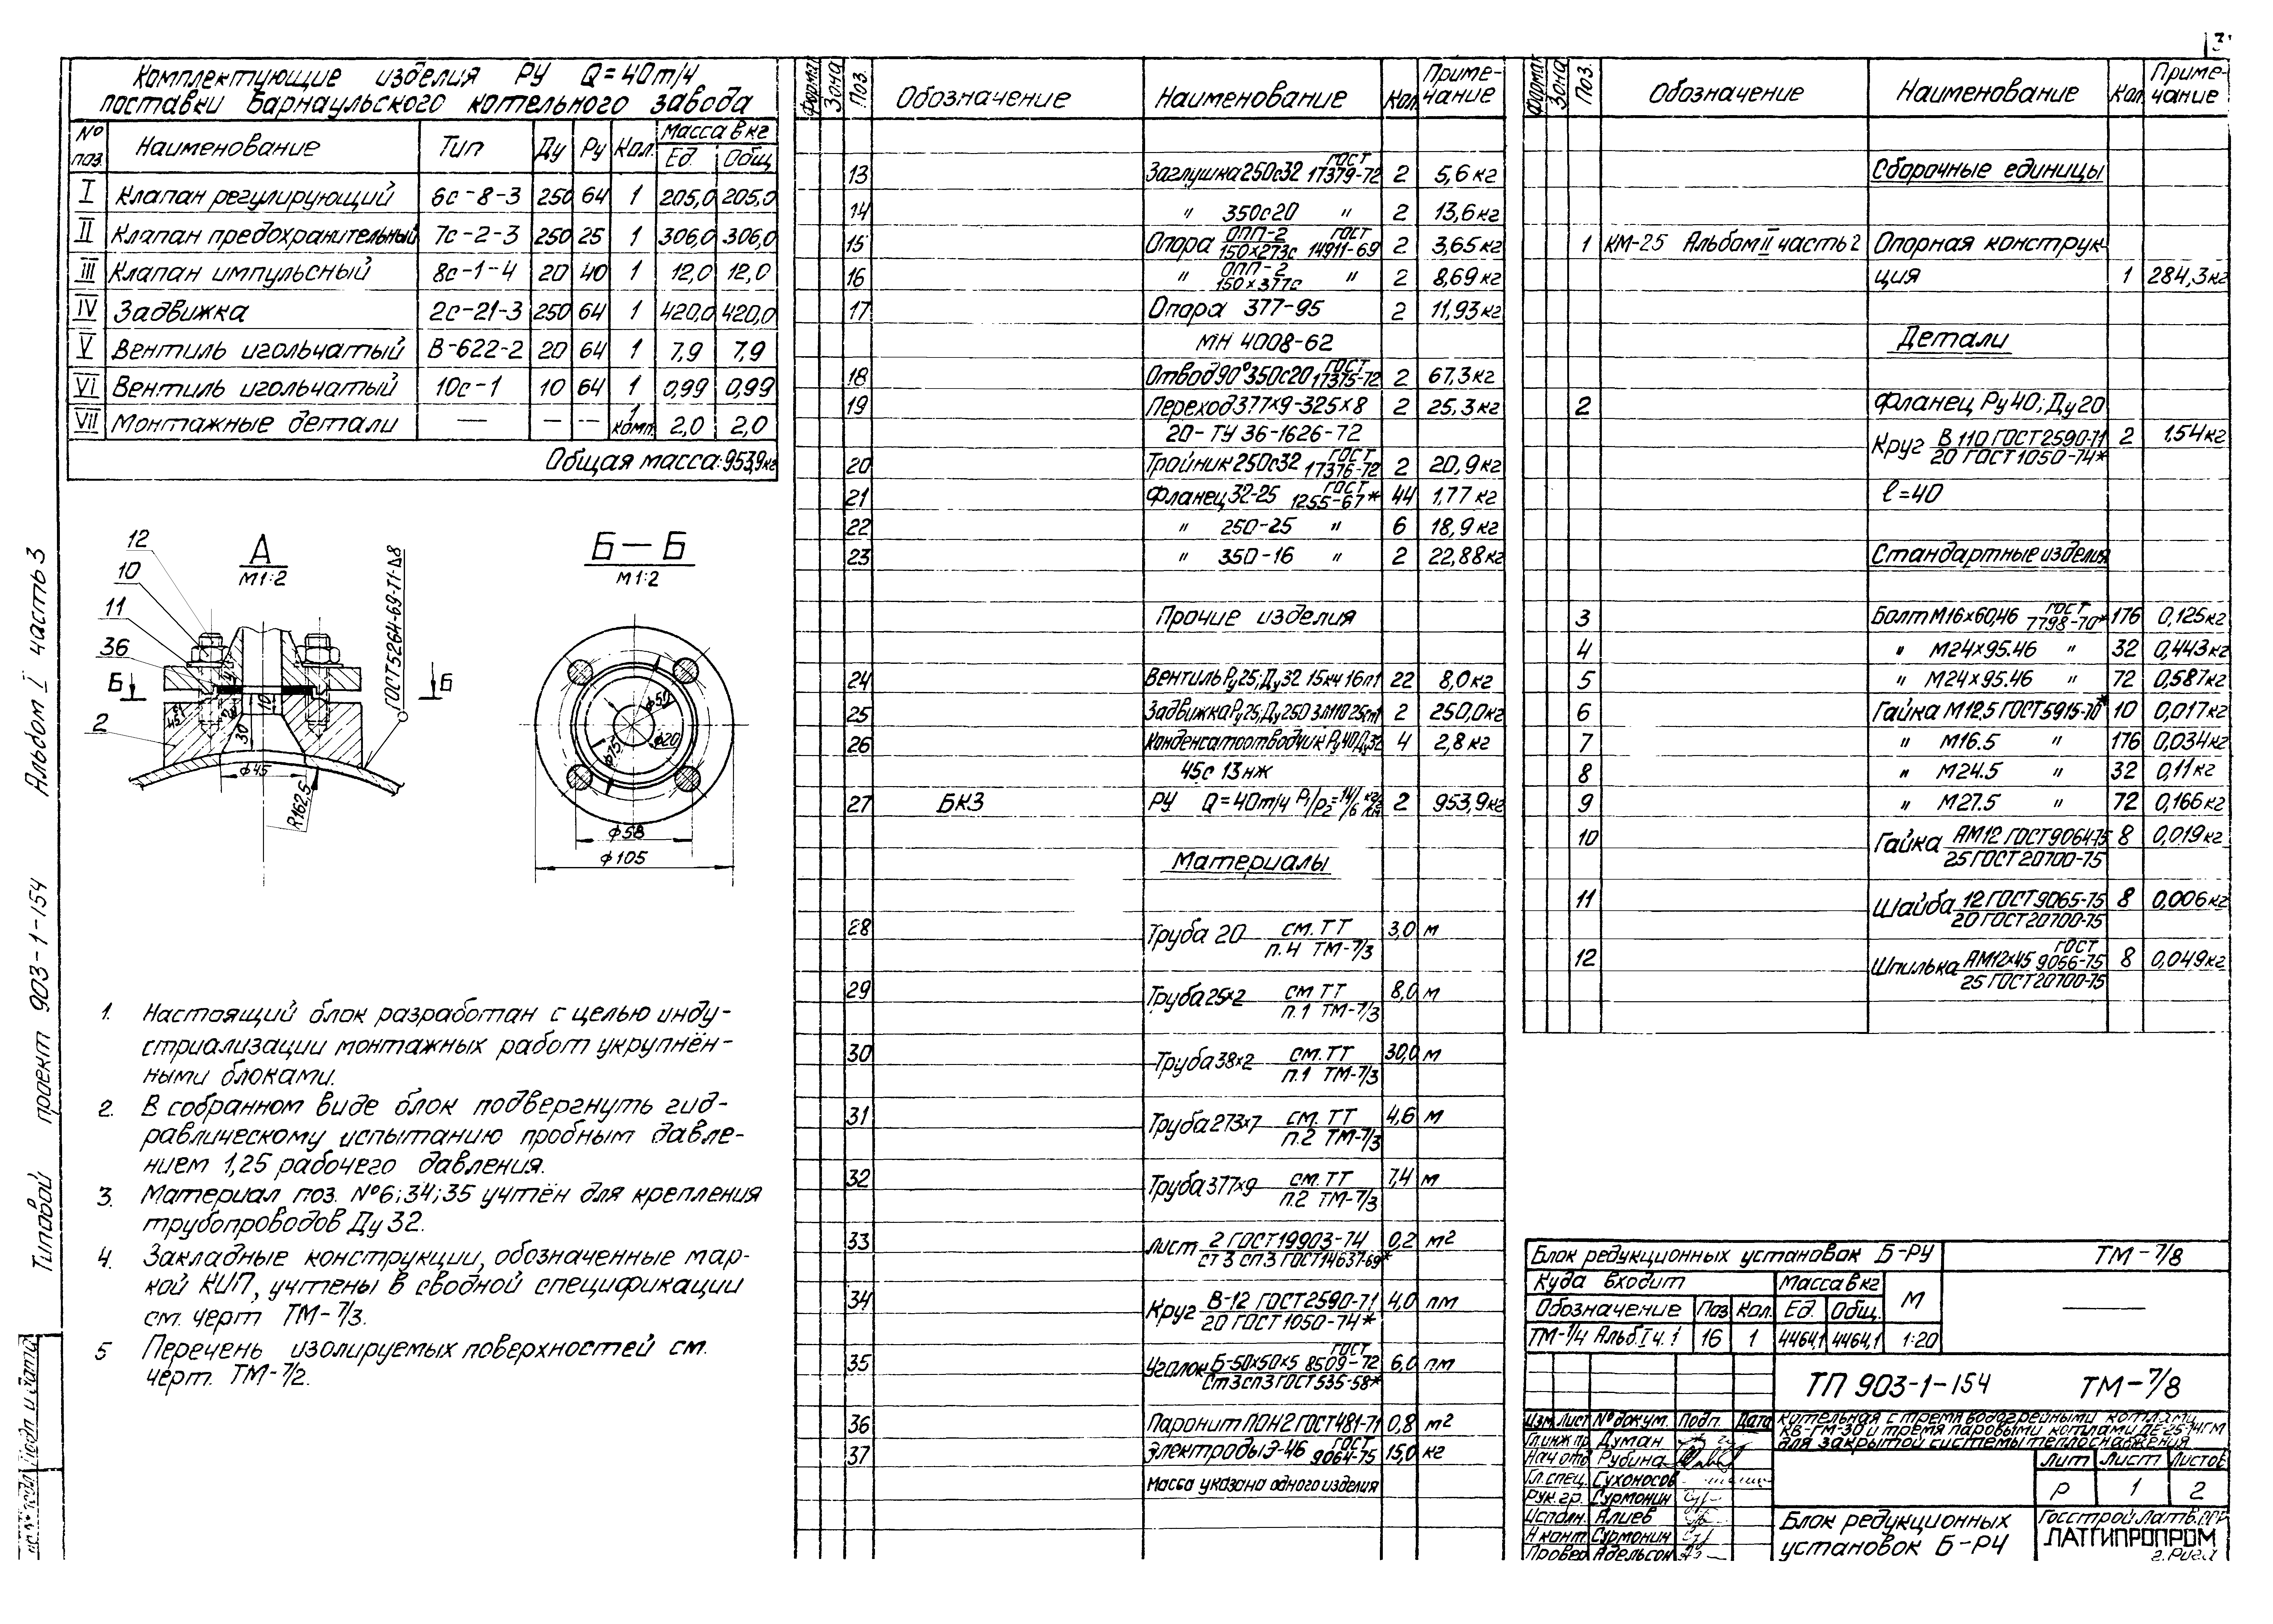 3
Комплектующие изделия РУ Q=40т/ч
поставки Барнаульского котельного завода
№ поз. Наименование Тип Ду Ру Кол. Масса в кг Ед. Общ.
I Клапан регулирующий 6с-8-3 250 64 1 205,0 205,0
II Клапан предохранительный 7с-2-3 250 25 1 306,0 306,0
III Клапан импульсный 8с-1-4 20 40 1 12,0 12,0
IV Задвижка 2с-21-3 250 64 1 420,0 420,0
V Вентиль игольчатый В-622-2 20 64 1 7,9 7,9
VI Вентиль игольчатый 10с-1 10 64 1 0,99 0,99
VII Монтажные детали — — — 1 комп. 2,0 2,0
Общая масса: 953,9кг
А
М1:2
12
10
11
36
Б Б
2
30
10
ф45
R162,5
ГОСТ5264-69-Т1-△8
Б—Б
М1:2
ф50
ф20
ф75
ф58
ф105
1. Настоящий блок разработан с целью инду-
стриализации монтажных работ укрупнён-
ными блоками.
2. В собранном виде блок подвергнуть гид-
равлическому испытанию пробным давле-
нием 1,25 рабочего давления.
3. Материал поз. №6;34;35 учтён для крепления
трубопроводов Ду 32.
4. Закладные конструкции, обозначенные мар-
кой КИП, учтены в сводной спецификации
см. черт ТМ-7/3.
5 Перечень изолируемых поверхностей см.
черт. ТМ-7/2.
Типовой проект 903-1-154 Альбом I часть 3
Подп и дата
Формат Зона Поз. Обозначение Наименование Кол. Приме-
чание
13 Заглушка 250с32 ГОСТ 17379-72 2 5,6 кг
14 " 350с20 " 2 13,6 кг
15 Опора ОПП-2 150×273с ГОСТ 14911-69 2 3,65 кг
16 " ОПП-2 150×377с " 2 8,69 кг
17 Опора 377-95 2 11,93 кг
МН 4008-62
18 Отвод 90° 350с20 ГОСТ 17375-72 2 67,3 кг
19 Переход 377×9-325×8 2 25,3 кг
20- ТУ 36-1626-72
20 Тройник 250с32 ГОСТ 17376-72 2 20,9 кг
21 Фланец 32-25 ГОСТ 1255-67* 44 1,77 кг
22 " 250-25 " 6 18,9 кг
23 " 350-16 " 2 22,88 кг
Прочие изделия
24 Вентиль Ру25; Ду 32 15кч 16п1 22 8,0 кг
25 Задвижка Ру25; Ду 250 2 250,0 кг
26 Конденсатоотводчик Ру40 Ду32 4 2,8 кг
45с 13нж
27 БКЗ РУ Q=40т/ч P1/P2=14/6 2 953,9 кг
Материалы
28 Труба 20 см. ТТ 3,0 м
п.4 ТМ-7/3
29 Труба 25×2 см ТТ 8,0 м
п.1 ТМ-7/3
30 Труба 38×2 см. ТТ 30,0 м
п.1 ТМ-7/3
31 Труба 273×7 см. ТТ 4,6 м
п.2 ТМ-7/3
32 Труба 377×9 см. ТТ 7,4 м
п.2 ТМ-7/3
33 Лист 2 ГОСТ19903-74 0,2 м2
ст 3 сп 3 ГОСТ14637-69*
34 Круг В-12 ГОСТ2590-71 4,0 пм
20 ГОСТ 1050-74*
35 Уголок Б-50×50×5 ГОСТ 8509-72 6,0 пм
Ст3сп3 ГОСТ535-58*
36 Паронит ПОН2 ГОСТ481-71 0,8 м2
37 Электроды Э-46 ГОСТ 9064-75 15,0 кг
Масса указана одного изделия
Формат Зона Поз. Обозначение Наименование Кол. Приме-
чание
Сборочные единицы
1 КМ-25 Альбом II часть 2 Опорная конструк-
ция 1 284,3кг
Детали
2 Фланец Ру40; Ду20
Круг В 110 ГОСТ2590-71 2 1.54 кг
20 ГОСТ1050-74*
ℓ=40
Стандартные изделия
3 Болт М16×60,46 ГОСТ 7798-70* 176 0,125кг
4 " М24×95.46 " 32 0,443кг
5 " М24×95.46 " 72 0,587кг
6 Гайка М12,5 ГОСТ5915-70* 10 0,017кг
7 " М16.5 " 176 0,034кг
8 " М24.5 " 32 0,11кг
9 " М27.5 " 72 0,166кг
10 Гайка АМ12 ГОСТ9064-75 8 0,019кг
25 ГОСТ20700-75
11 Шайба 12 ГОСТ9065-75 8 0,006кг
20 ГОСТ20700-75
12 Шпилька АМ12×45 ГОСТ 9066-75 8 0,049кг
25 ГОСТ20700-75
Блок редукционных установок Б-РУ ТМ-7/8
Куда входит Масса в кг М
Обозначение Поз Кол. Ед. Общ.
ТМ-7/4 Альб. I ч. 1 16 1 4464,1 4464,1 1:20
ТП 903-1-154 ТМ-7/8
Изм. Лист № докум. Подп. Дата
Гл.инж.пр Думан
Нач отд Рубина
Гл.спец. Сухоносов
Рук.гр. Сурмонин
Исполн. Алиев
Н конт. Сурмонин
Провер. Адельсон
Котельная с тремя водогрейными котлами
КВ-ГМ-30 и тремя паровыми котлами ДЕ-25-14ГМ
для закрытой системы теплоснабжения
Лит Лист Листов
Р 1 2
Блок редукционных
установок Б-РУ
Госстрой Латв.ССР
ЛАТГИПРОПРОМ
г.Рига